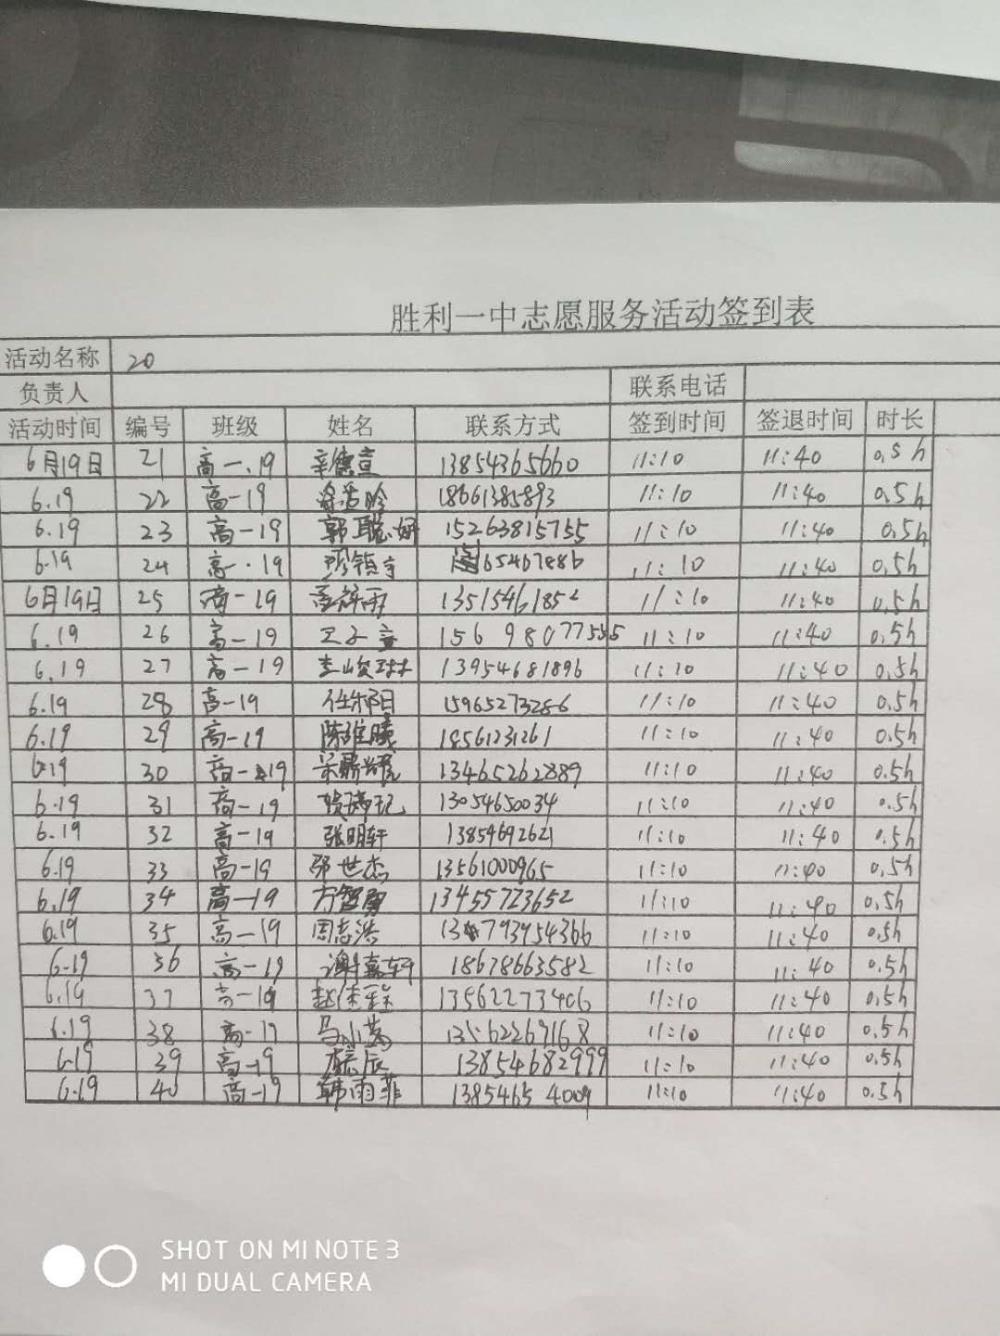 胜利一中志愿服务活动签到表
活动名称 20
负责人 联系电话
活动时间 编号 班级 姓名 联系方式 签到时间 签退时间 时长
6月19日 21 高一.19 13854365660 11:10 11:40 0.5h
6.19 22 高一19 18661385893 11:10 11:40 0.5h
6.19 23 高一19 郭聪妍 15263815755 11:10 11:40 0.5h
6.19 24 高一.19 11:10 11:40 0.5h
6月19日 25 高一19 13515461852 11:10 11:40 0.5h
6.19 26 高一19 王子宣 156 98077555 11:10 11:40 0.5h
6.19 27 高一19 13954681896 11:10 11:40 0.5h
6.19 28 高一19 15965273286 11:10 11:40 0.5h
6.19 29 高一19 18561231261 11:10 11:40 0.5h
6.19 30 高一19 13465262889 11:10 11:40 0.5h
6.19 31 高一19 13054650034 11:10 11:40 0.5h
6.19 32 高一19 张明轩 13854692621 11:10 11:40 0.5h
6.19 33 高一19 世杰 13561000965 11:10 11:40 0.5h
6.19 34 高一19 方智勇 13455723652 11:10 11:40 0.5h
6.19 35 高一19 周志浩 11:10 11:40 0.5h
6.19 36 高一19 谢嘉轩 18678663582 11:10 11:40 0.5h
6.19 37 高一19 13562273406 11:10 11:40 0.5h
6.19 38 高一19 马小荔 13562269168 11:10 11:40 0.5h
6.19 39 高一19 13854682999 11:10 11:40 0.5h
6.19 40 高一19 韩雨菲 1385465 4009 11:10 11:40 0.5h
SHOT ON MI NOTE 3
MI DUAL CAMERA